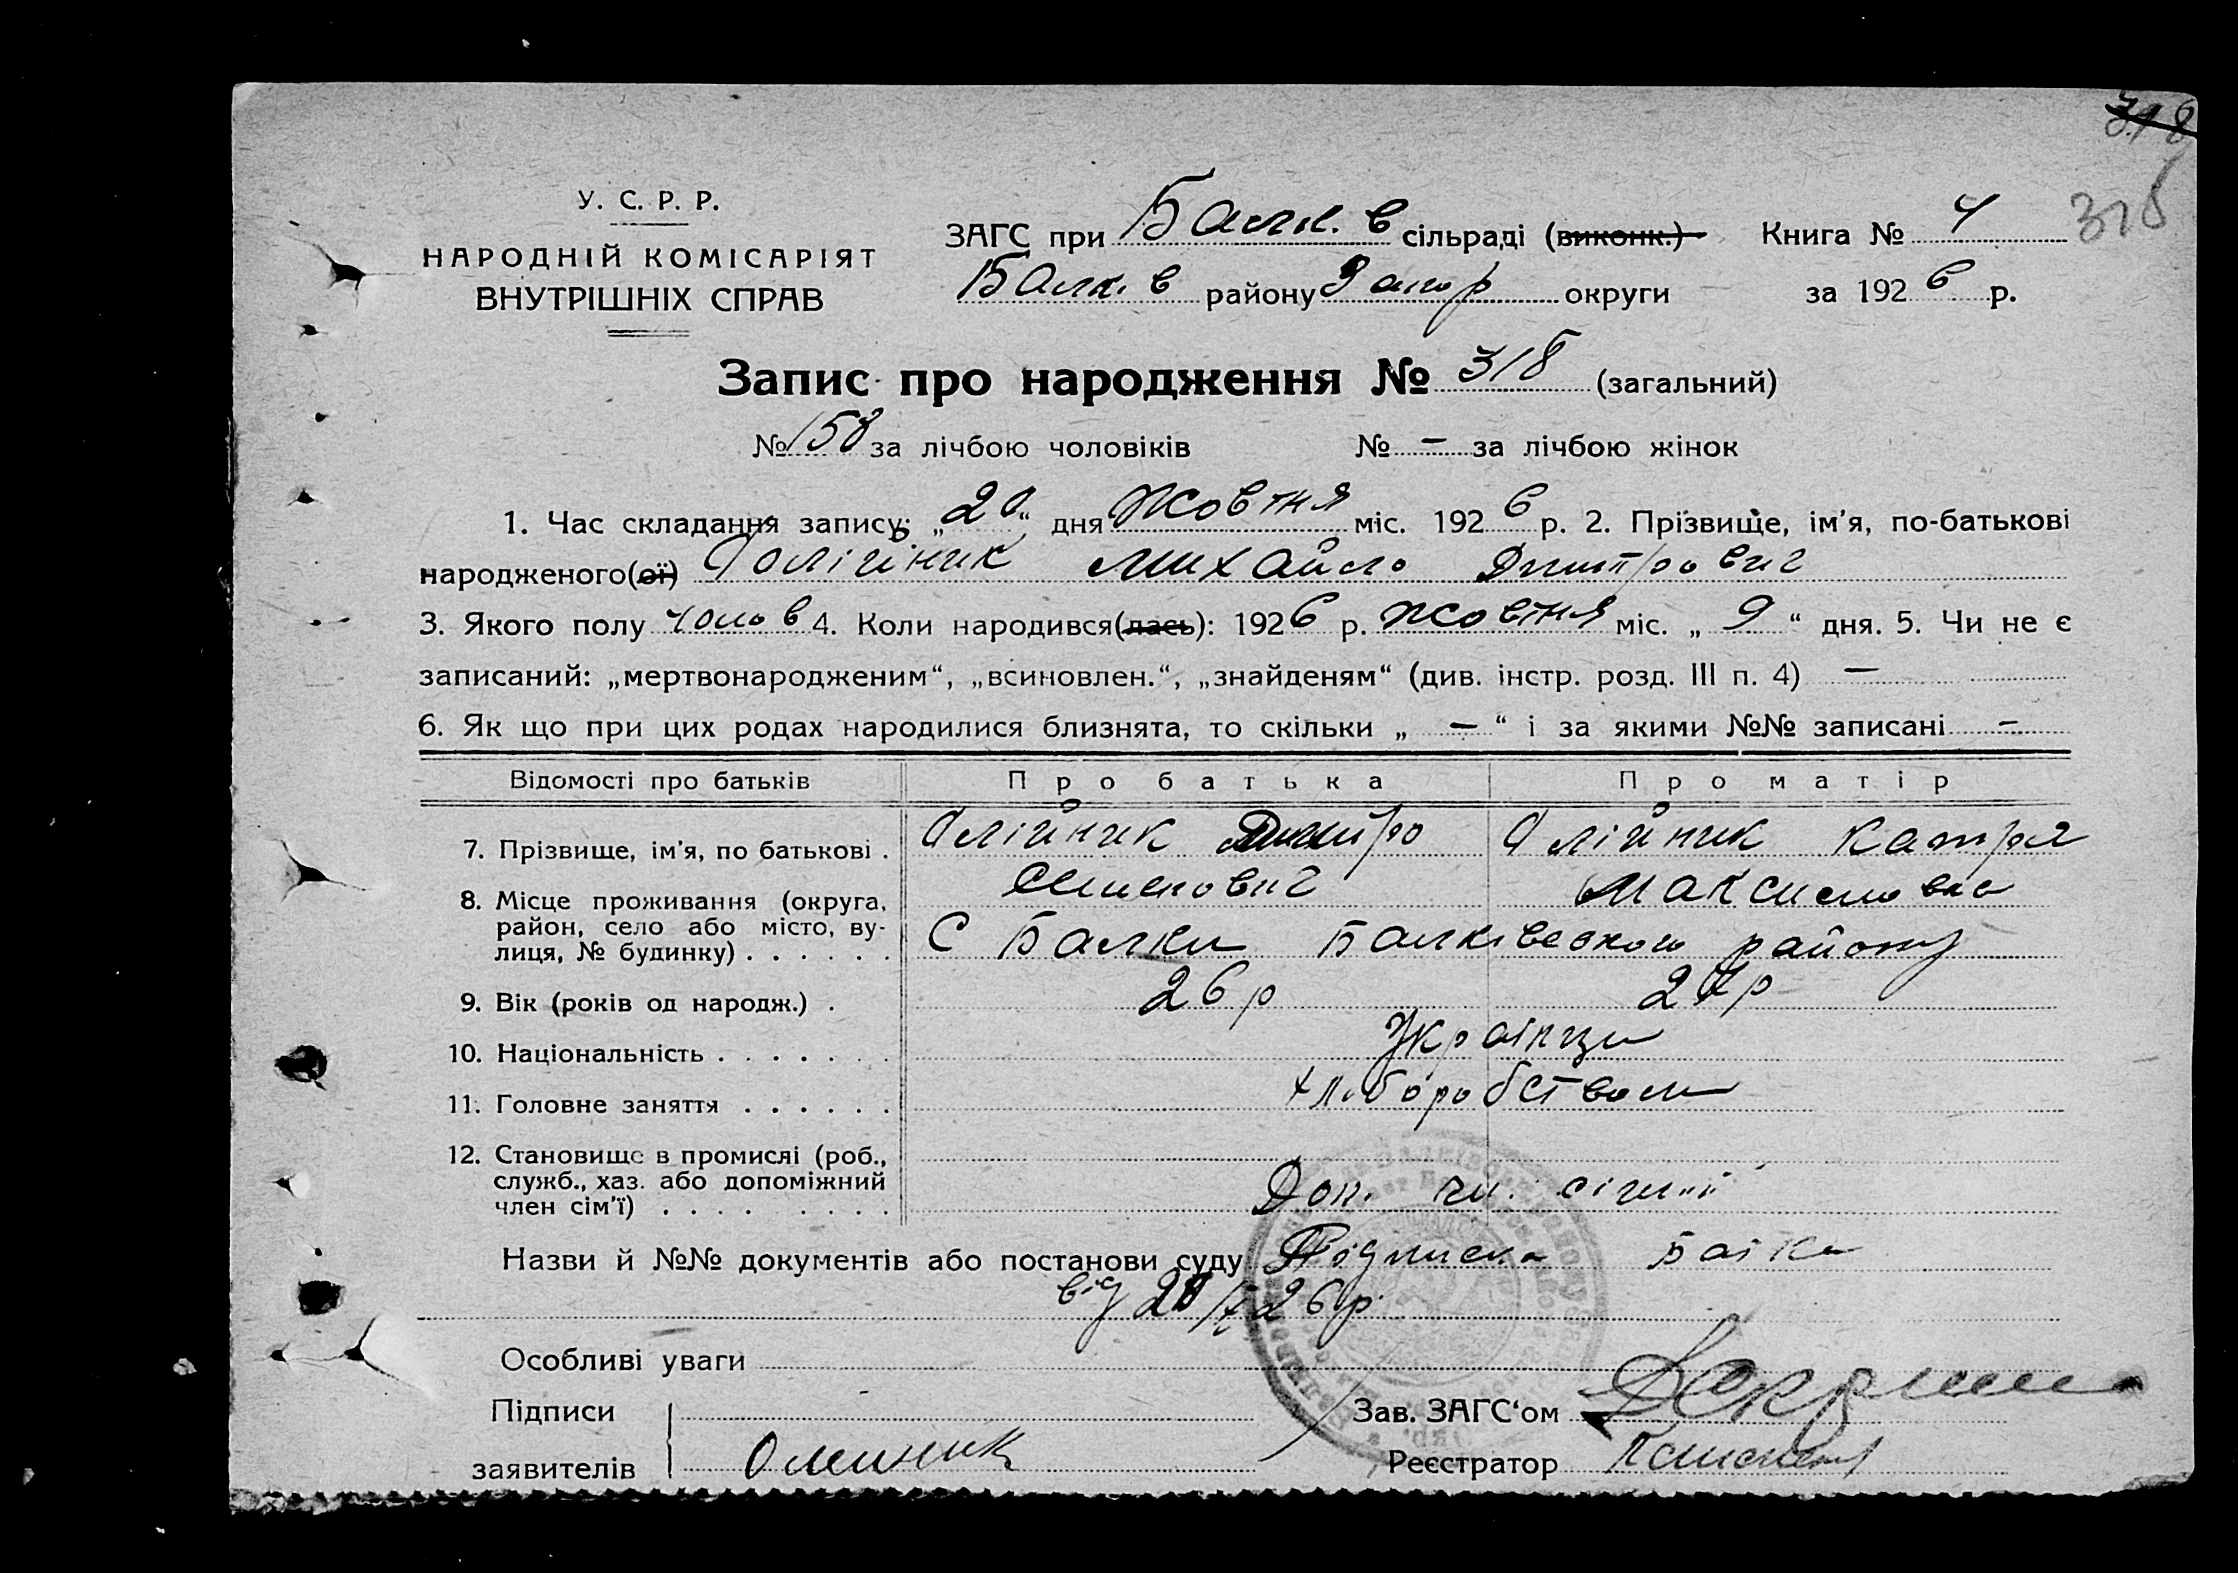 318
318
У. С. Р. Р.
НАРОДНІЙ КОМІСАРІЯТ
ВНУТРІШНІХ СПРАВ
ЗАГС при Балк. в сільраді (виконк.) Книга № 4
Балк. в району Запор округи за 1926 р.
Запис про народження № 318 (загальний)
№ 158 за лічбою чоловіків № — за лічбою жінок
1. Час складання запису: „20“ дня Жовтня міс. 1926 р. 2. Прізвище, ім'я, по-батькові
народженого(ої) Олійник Михайло Дмитрович
3. Якого полу чолов 4. Коли народився(лась): 1926 р. Жовтня міс. „9“ дня. 5. Чи не є
записаний: „мертвонародженим“, „всиновлен.“, „знайденям“ (див. інстр. розд. III п. 4) —
6. Як що при цих родах народилися близнята, то скільки „—“ і за якими №№ записані —
Відомості про батьків Про батька Про матір
7. Прізвище, ім'я, по батькові . Олійник Дмитро Олійник Катря
Семенович Максимовна
8. Місце проживання (округа,
район, село або місто, ву-
лиця, № будинку) . . . . . . С Балки Балківского району
9. Вік (років од народж.) . 26 р р
10. Національність . . . . . . . Українци
11. Головне заняття . . . . . . Хліборобством
12. Становище в промислі (роб.,
служб., хаз. або допоміжний
член сім'ї) . . . . . . . . Доп. чл. сімии
Назви й №№ документів або постанови суду Підписка Батька
від 20/X 26 р.
Особливі уваги
Підписи
заявителів Олииник
Зав. ЗАГС'ом
Реєстратор